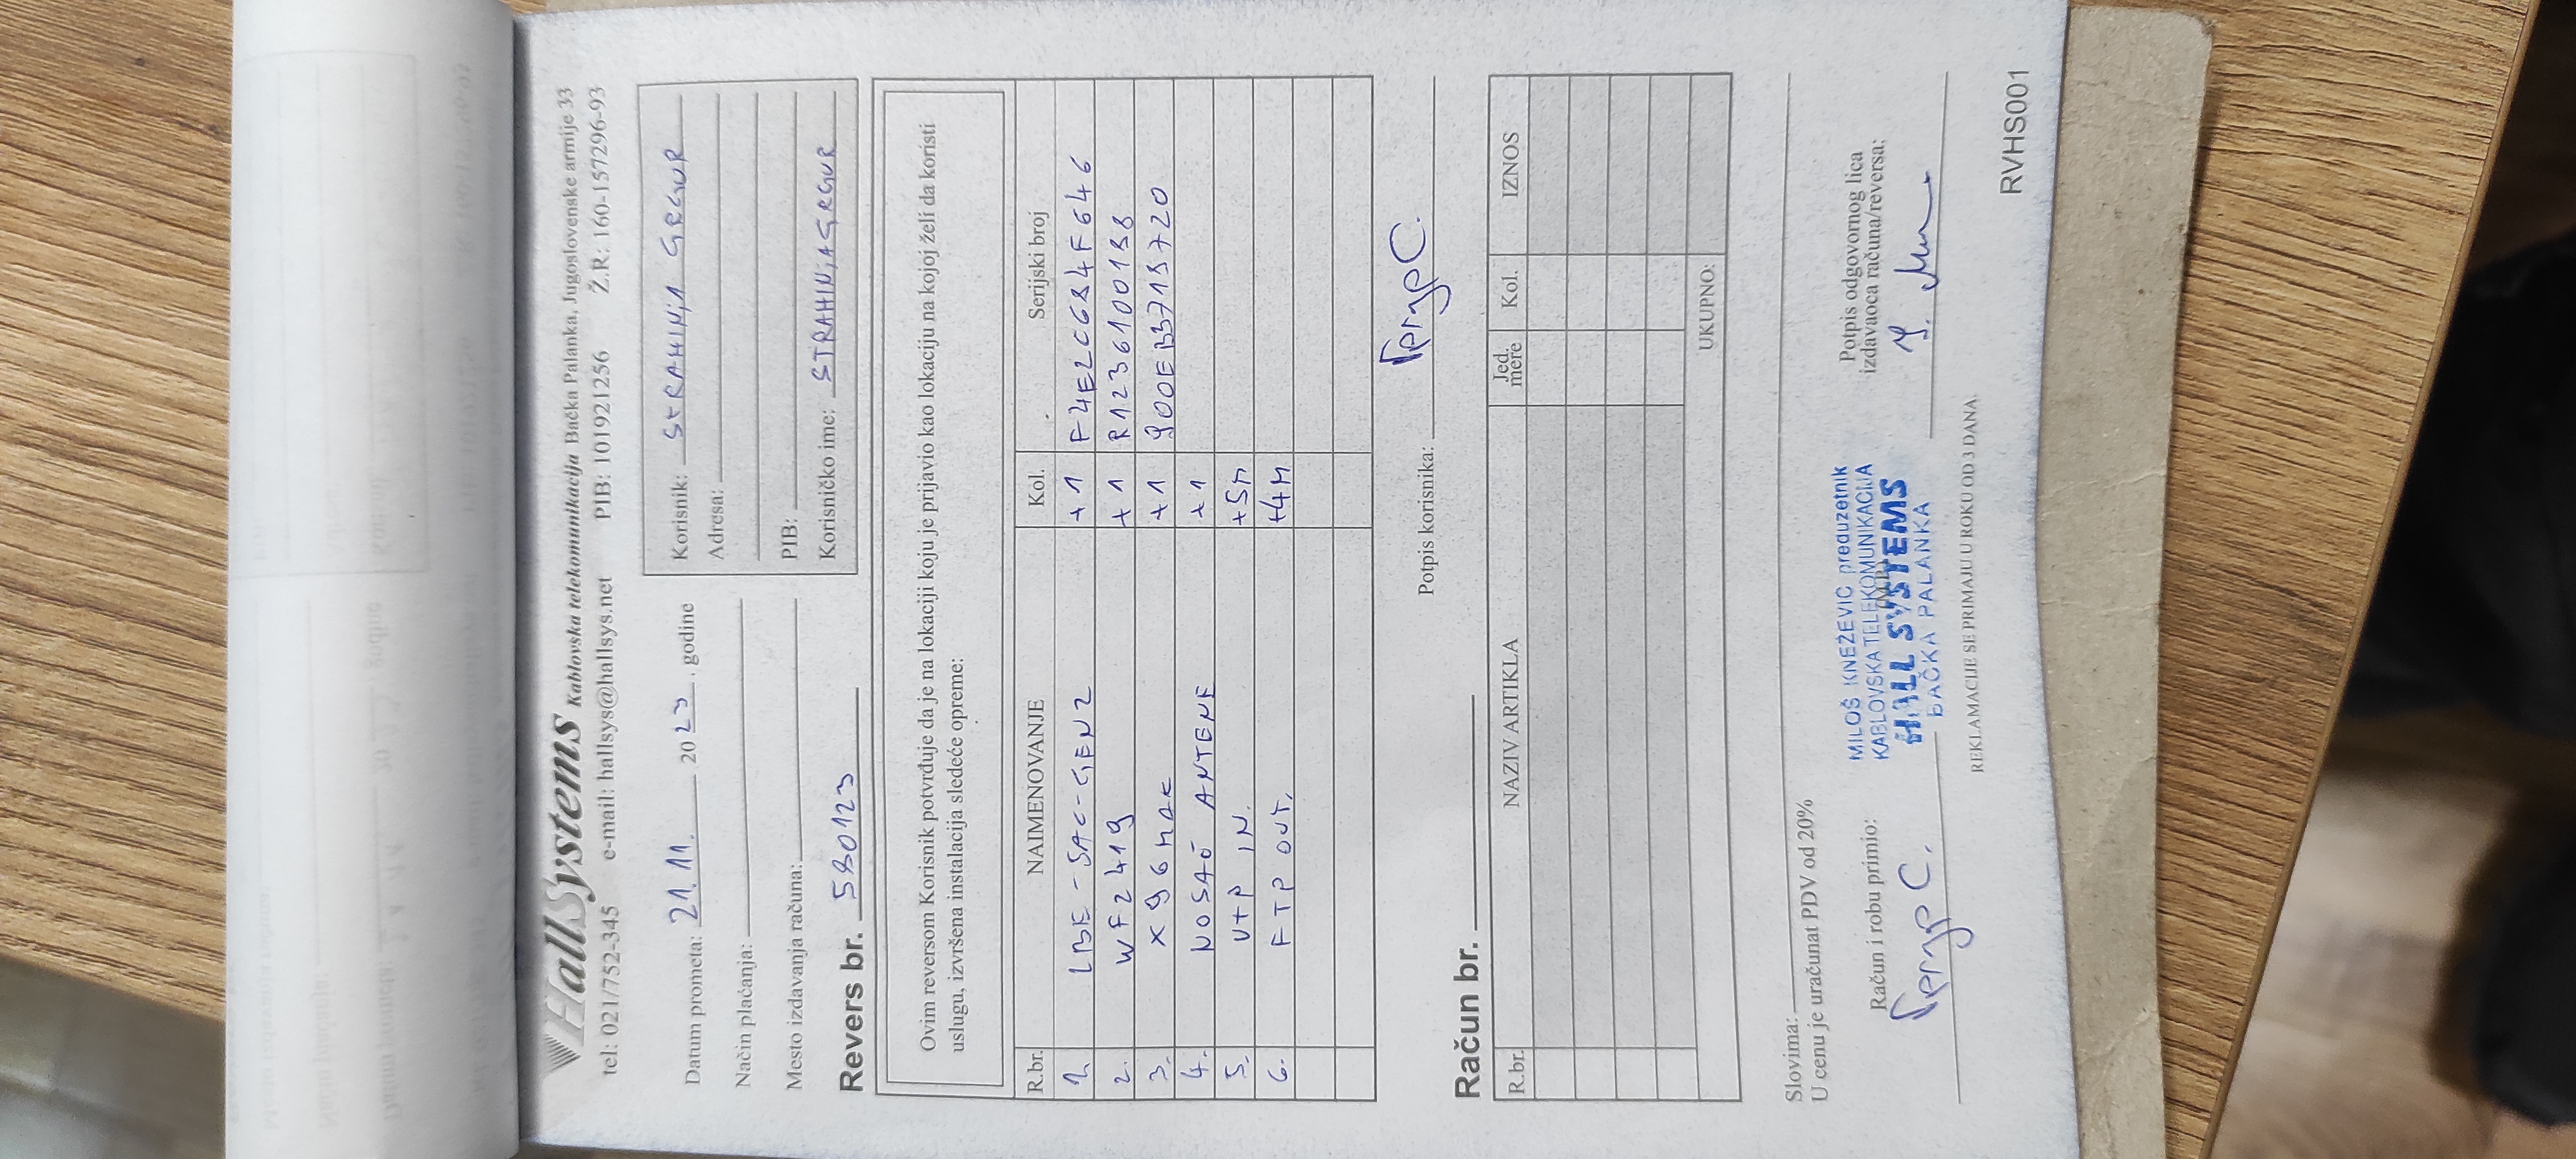 HallSystems Kablovska telekomunikacija Bačka Palanka, Jugoslovenske armije 33
tel: 021/752-345 e-mail: hallsys@hallsys.net PIB: 101921256 Ž.R.: 160-157296-93
Datum prometa: 21.11. 2023. godine
Način plaćanja:
Mesto izdavanja računa:
Korisnik: STRAHINJA GRGUR
Adresa:
PIB:
Korisničko ime: STRAHINJAGRGUR
Revers br. 580123
Ovim reversom Korisnik potvrđuje da je na lokaciji koju je prijavio kao lokaciju na kojoj želi da koristi
uslugu, izvršena instalacija sledeće opreme:
R.br. NAIMENOVANJE Kol. Serijski broj
1. LBE-5AC-GEN2 +1 F4E2C684F646
2. WF2419 +1 R12361000188
3. X96MAX +1 900EB3715720
4. NOSAČ ANTENE +1
5. UTP IN. +5M
6. FTP OUT. +4M
Potpis korisnika: Гргур С.
Račun br.
R.br. NAZIV ARTIKLA Jed. mere Kol. IZNOS
UKUPNO:
Slovima:
U cenu je uračunat PDV od 20%
Račun i robu primio:
Гргур С.
MILOŠ KNEŽEVIĆ preduzetnik
KABLOVSKA TELEKOMUNIKACIJA
HALL SYSTEMS
BAČKA PALANKA
Potpis odgovornog lica
izdavaoca računa/reversa:
REKLAMACIJE SE PRIMAJU U ROKU OD 3 DANA.
RVHS001